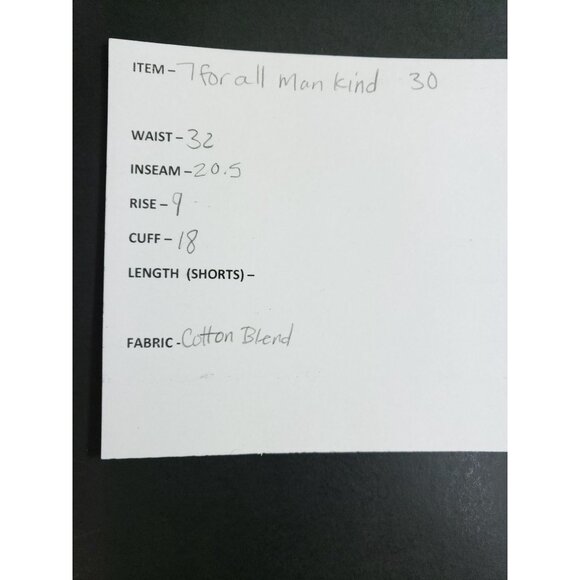 ITEM - 7 for all man kind 30
WAIST - 32
INSEAM - 20.5
RISE - 9
CUFF - 18
LENGTH (SHORTS) -
FABRIC - Cotton Blend